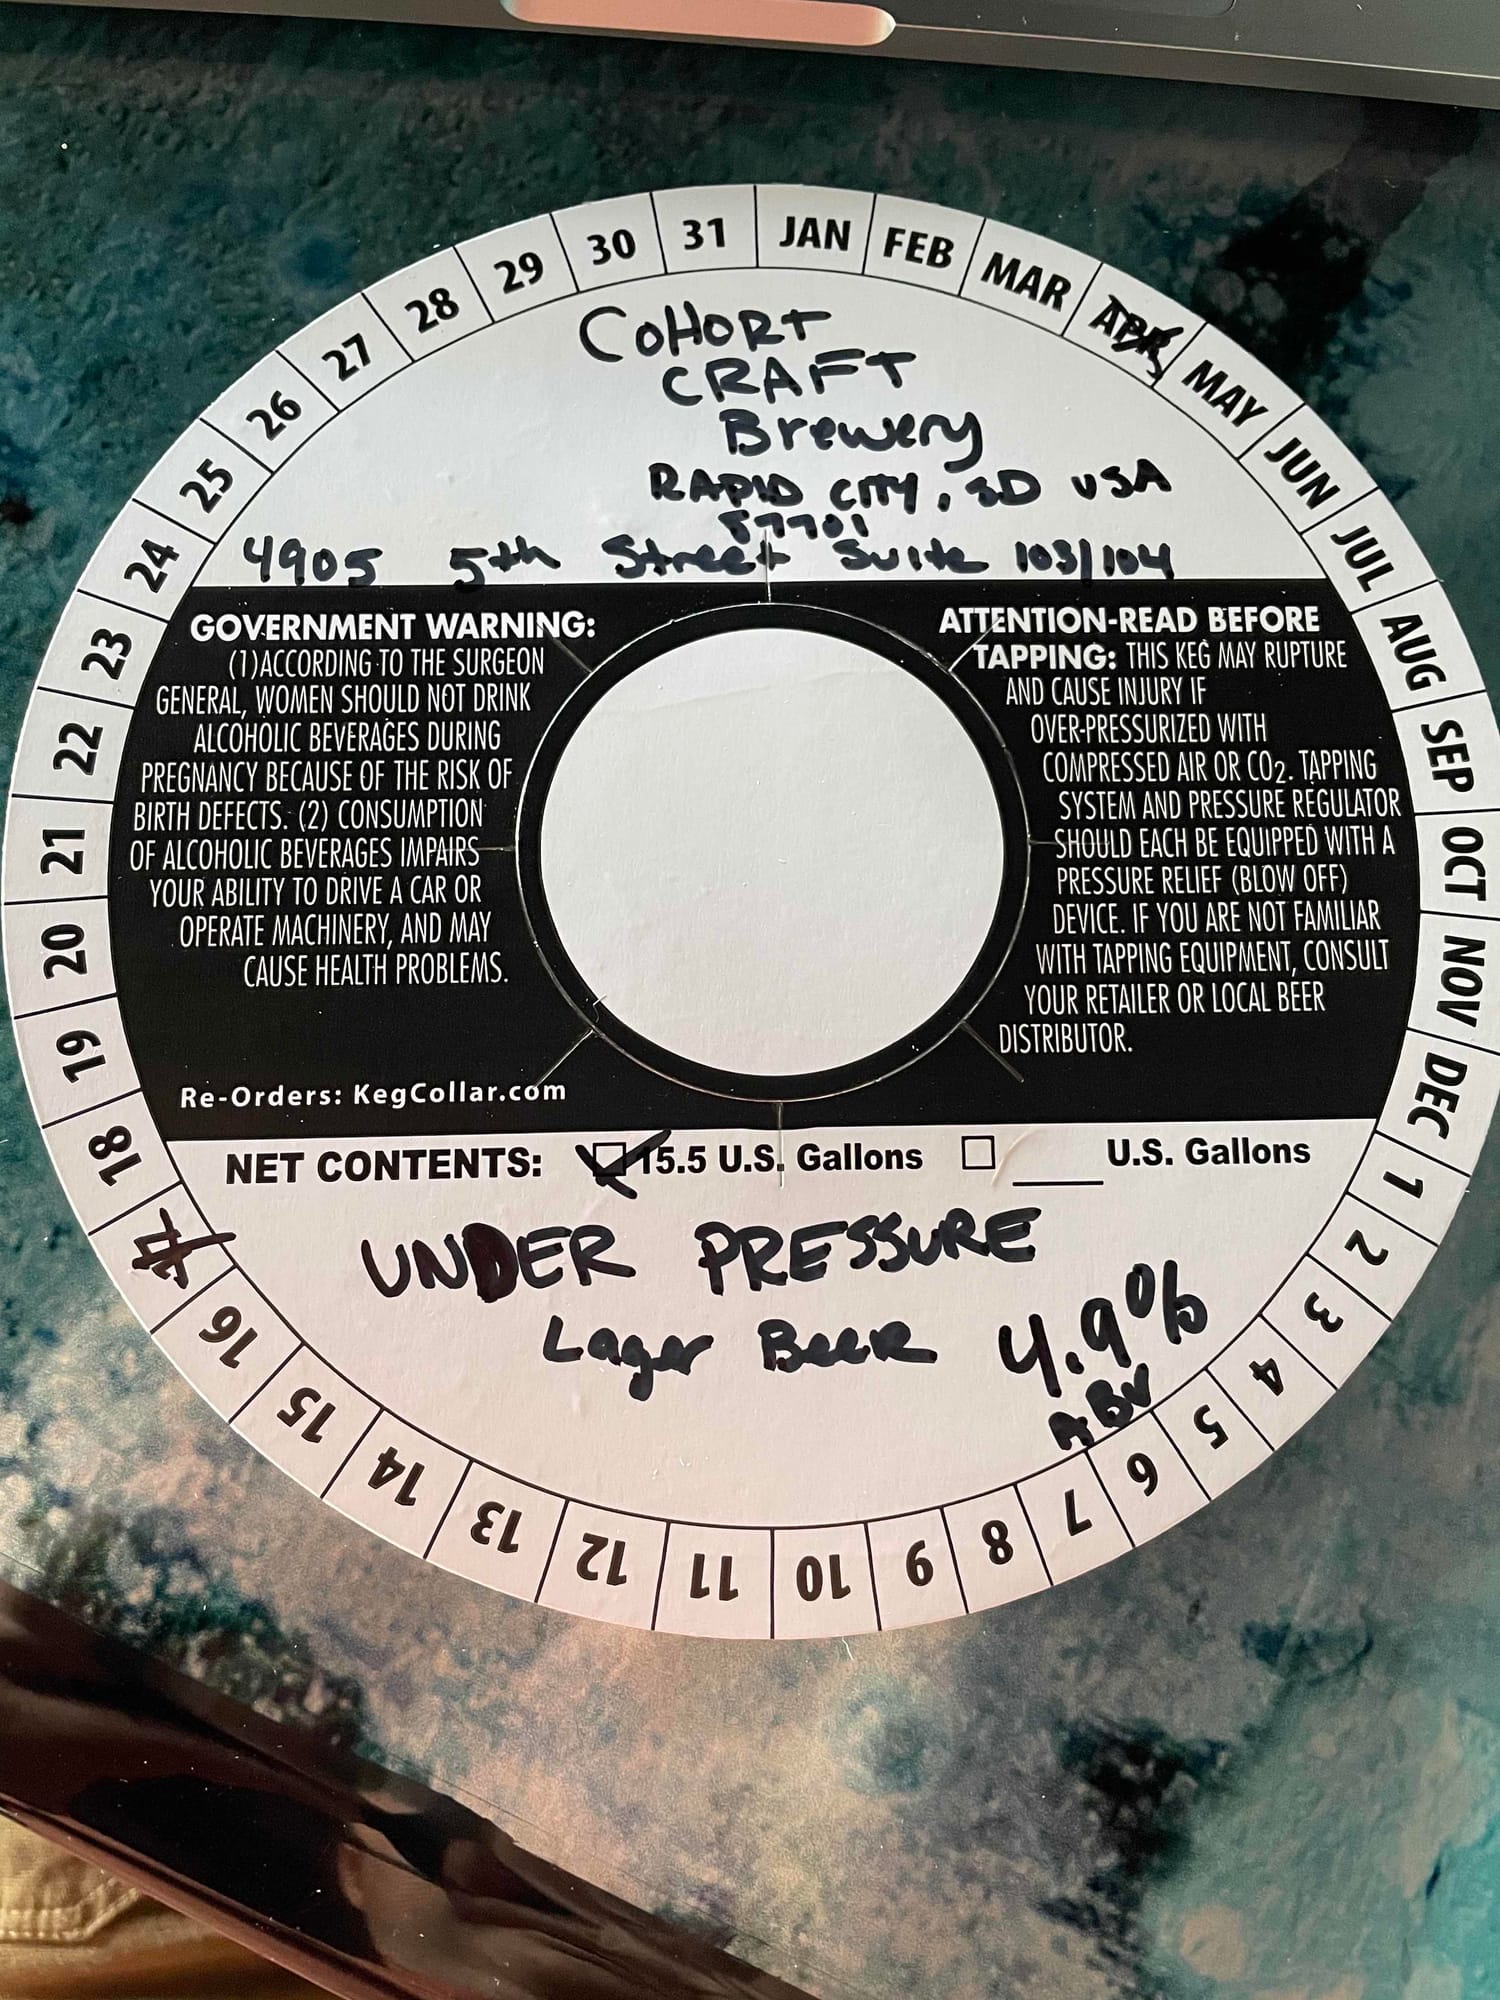 JAN FEB MAR APR MAY JUN JUL AUG SEP OCT NOV DEC
1 2 3 4 5 6 7 8 9 10 11 12 13 14 15 16 17 18 19 20 21 22 23 24 25 26 27 28 29 30 31
COHORT
CRAFT
Brewery
RAPID CITY, SD USA
57701
4905 5th Street Suite 103/104
GOVERNMENT WARNING:
(1)ACCORDING TO THE SURGEON
GENERAL, WOMEN SHOULD NOT DRINK
ALCOHOLIC BEVERAGES DURING
PREGNANCY BECAUSE OF THE RISK OF
BIRTH DEFECTS. (2) CONSUMPTION
OF ALCOHOLIC BEVERAGES IMPAIRS
YOUR ABILITY TO DRIVE A CAR OR
OPERATE MACHINERY, AND MAY
CAUSE HEALTH PROBLEMS.
Re-Orders: KegCollar.com
ATTENTION-READ BEFORE
TAPPING: THIS KEG MAY RUPTURE
AND CAUSE INJURY IF
OVER-PRESSURIZED WITH
COMPRESSED AIR OR CO2. TAPPING
SYSTEM AND PRESSURE REGULATOR
SHOULD EACH BE EQUIPPED WITH A
PRESSURE RELIEF (BLOW OFF)
DEVICE. IF YOU ARE NOT FAMILIAR
WITH TAPPING EQUIPMENT, CONSULT
YOUR RETAILER OR LOCAL BEER
DISTRIBUTOR.
NET CONTENTS: 15.5 U.S. Gallons ____ U.S. Gallons
UNDER PRESSURE
Lager Beer 4.9%
ABV